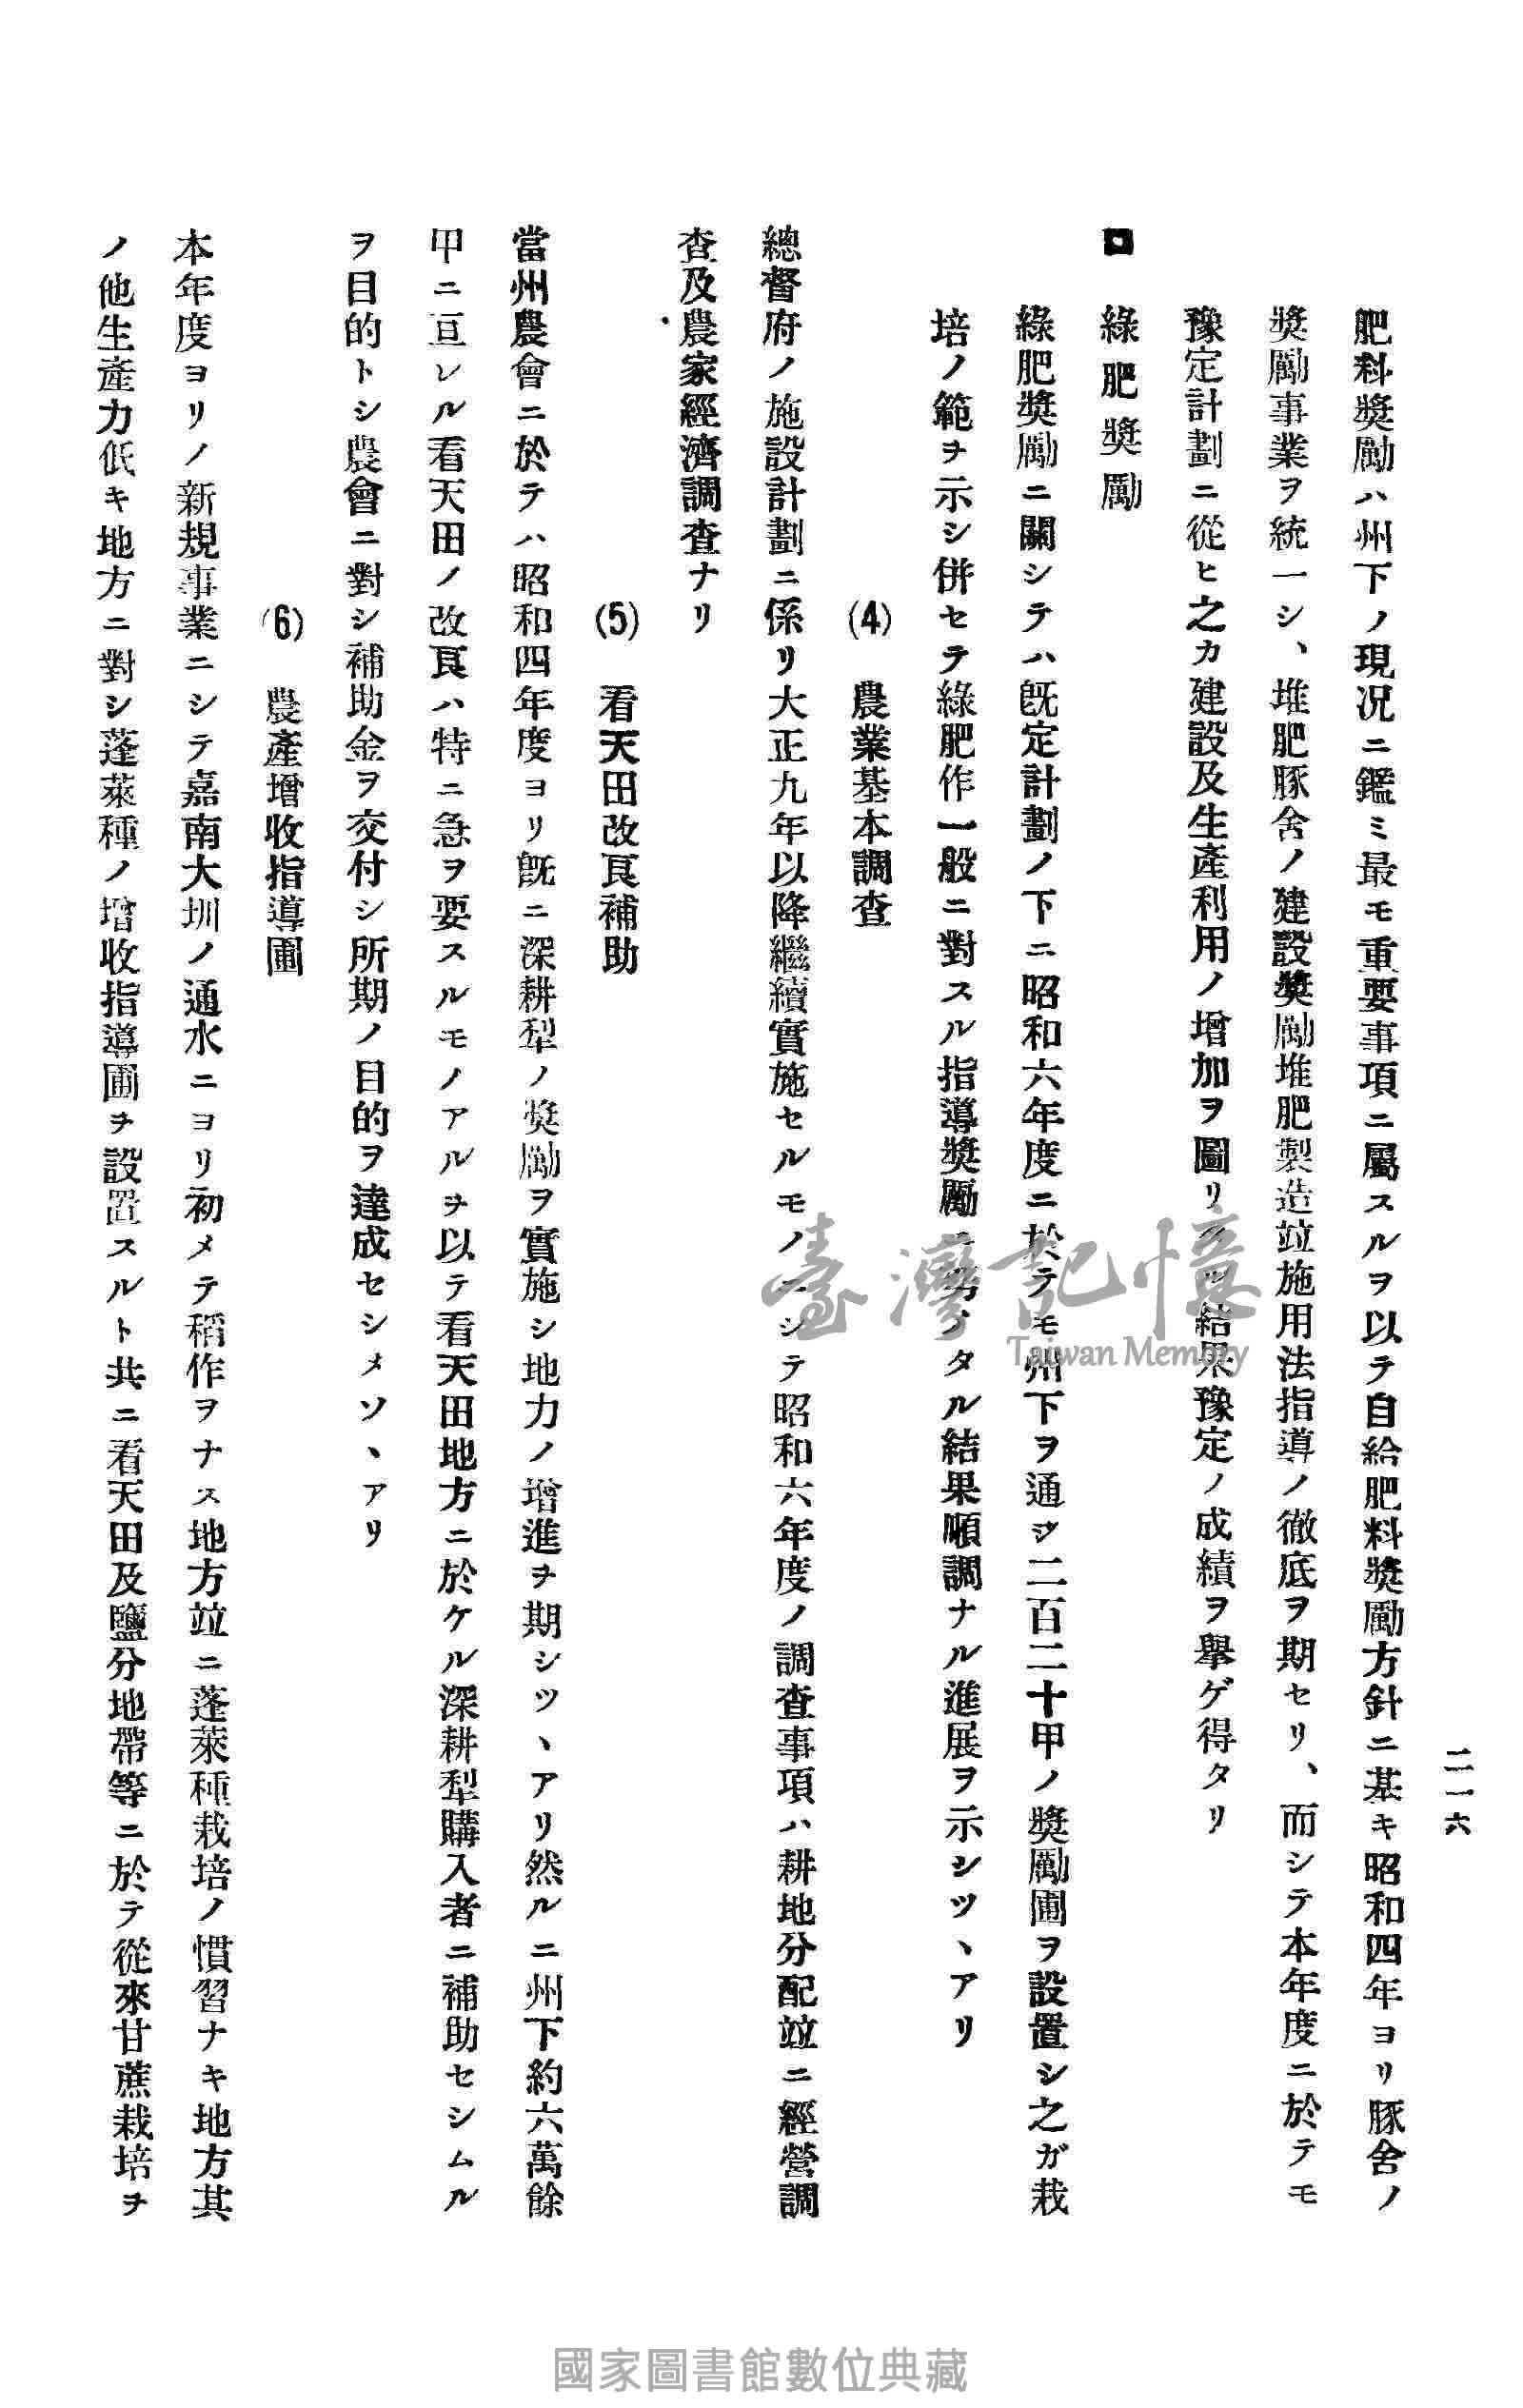 二一六
肥料奬勵ハ州下ノ現況ニ鑑ミ最モ重要事項ニ屬スルヲ以テ自給肥料奬勵方針ニ基キ昭和四年ヨリ豚舍ノ
奬勵事業ヲ統一シ、堆肥豚舍ノ建設奬勵堆肥製造竝施用法指導ノ徹底ヲ期セリ、而シテ本年度ニ於テモ
豫定計劃ニ從ヒ之カ建設及生產利用ノ增加ヲ圖リタル結果豫定ノ成績ヲ擧ゲ得タリ
ロ 綠肥奬勵
綠肥奬勵ニ關シテハ旣定計劃ノ下ニ昭和六年度ニ於テモ州下ヲ通ジ二百二十甲ノ奬勵圃ヲ設置シ之ガ栽
培ノ範ヲ示シ併セテ綠肥作一般ニ對スル指導奬勵ニ努メタル結果順調ナル進展ヲ示シツヽアリ
(4) 農業基本調査
總督府ノ施設計劃ニ係リ大正九年以降繼續實施セルモノニシテ昭和六年度ノ調査事項ハ耕地分配竝ニ經營調
査及農家經濟調査ナリ
(5) 看天田改良補助
當州農會ニ於テハ昭和四年度ヨリ旣ニ深耕犁ノ奬勵ヲ實施シ地力ノ增進ヲ期シツヽアリ然ルニ州下約六萬餘
甲ニ亘レル看天田ノ改良ハ特ニ急ヲ要スルモノアルヲ以テ看天田地方ニ於ケル深耕犁購入者ニ補助セシムル
ヲ目的トシ農會ニ對シ補助金ヲ交付シ所期ノ目的ヲ達成セシメソヽアリ
(6) 農產增收指導圃
本年度ヨリノ新規事業ニシテ嘉南大圳ノ通水ニヨリ初メテ稻作ヲナス地方竝ニ蓬萊種栽培ノ慣習ナキ地方其
ノ他生產力低キ地方ニ對シ蓬萊種ノ增收指導圃ヲ設置スルト共ニ看天田及鹽分地帶等ニ於テ從來甘蔗栽培ヲ
臺灣記憶
Taiwan Memory
國家圖書館數位典藏